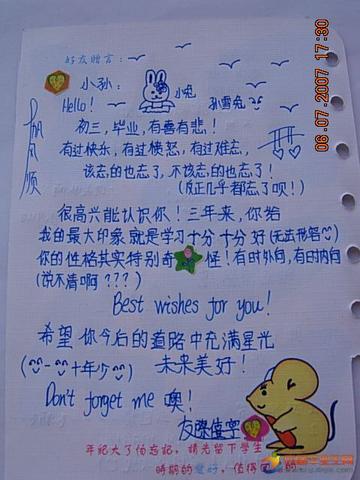 好友赠言:
小孙: 小兔
Hello! 孙雪兔
帆风顺
初三,毕业,有喜有悲!
有过快乐,有过愤怒,有过难忘,
该忘的也忘了,不该忘的也忘了!
(反正几乎都忘了呗!)
很高兴能认识你!三年来,你给
我的最大印象就是学习十分十分好(无法形容)
你的性格其实特别奇怪!有时外向,有时内向
(说不清啊???)
Best wishes for you!
希望你今后的道路中充满星光
(十年少) 未来美好!
Don't forget me 噢!
友
年纪大了怕忘记,请先留下学生
时期的爱好,值得回 的
06.07.2007 17:30